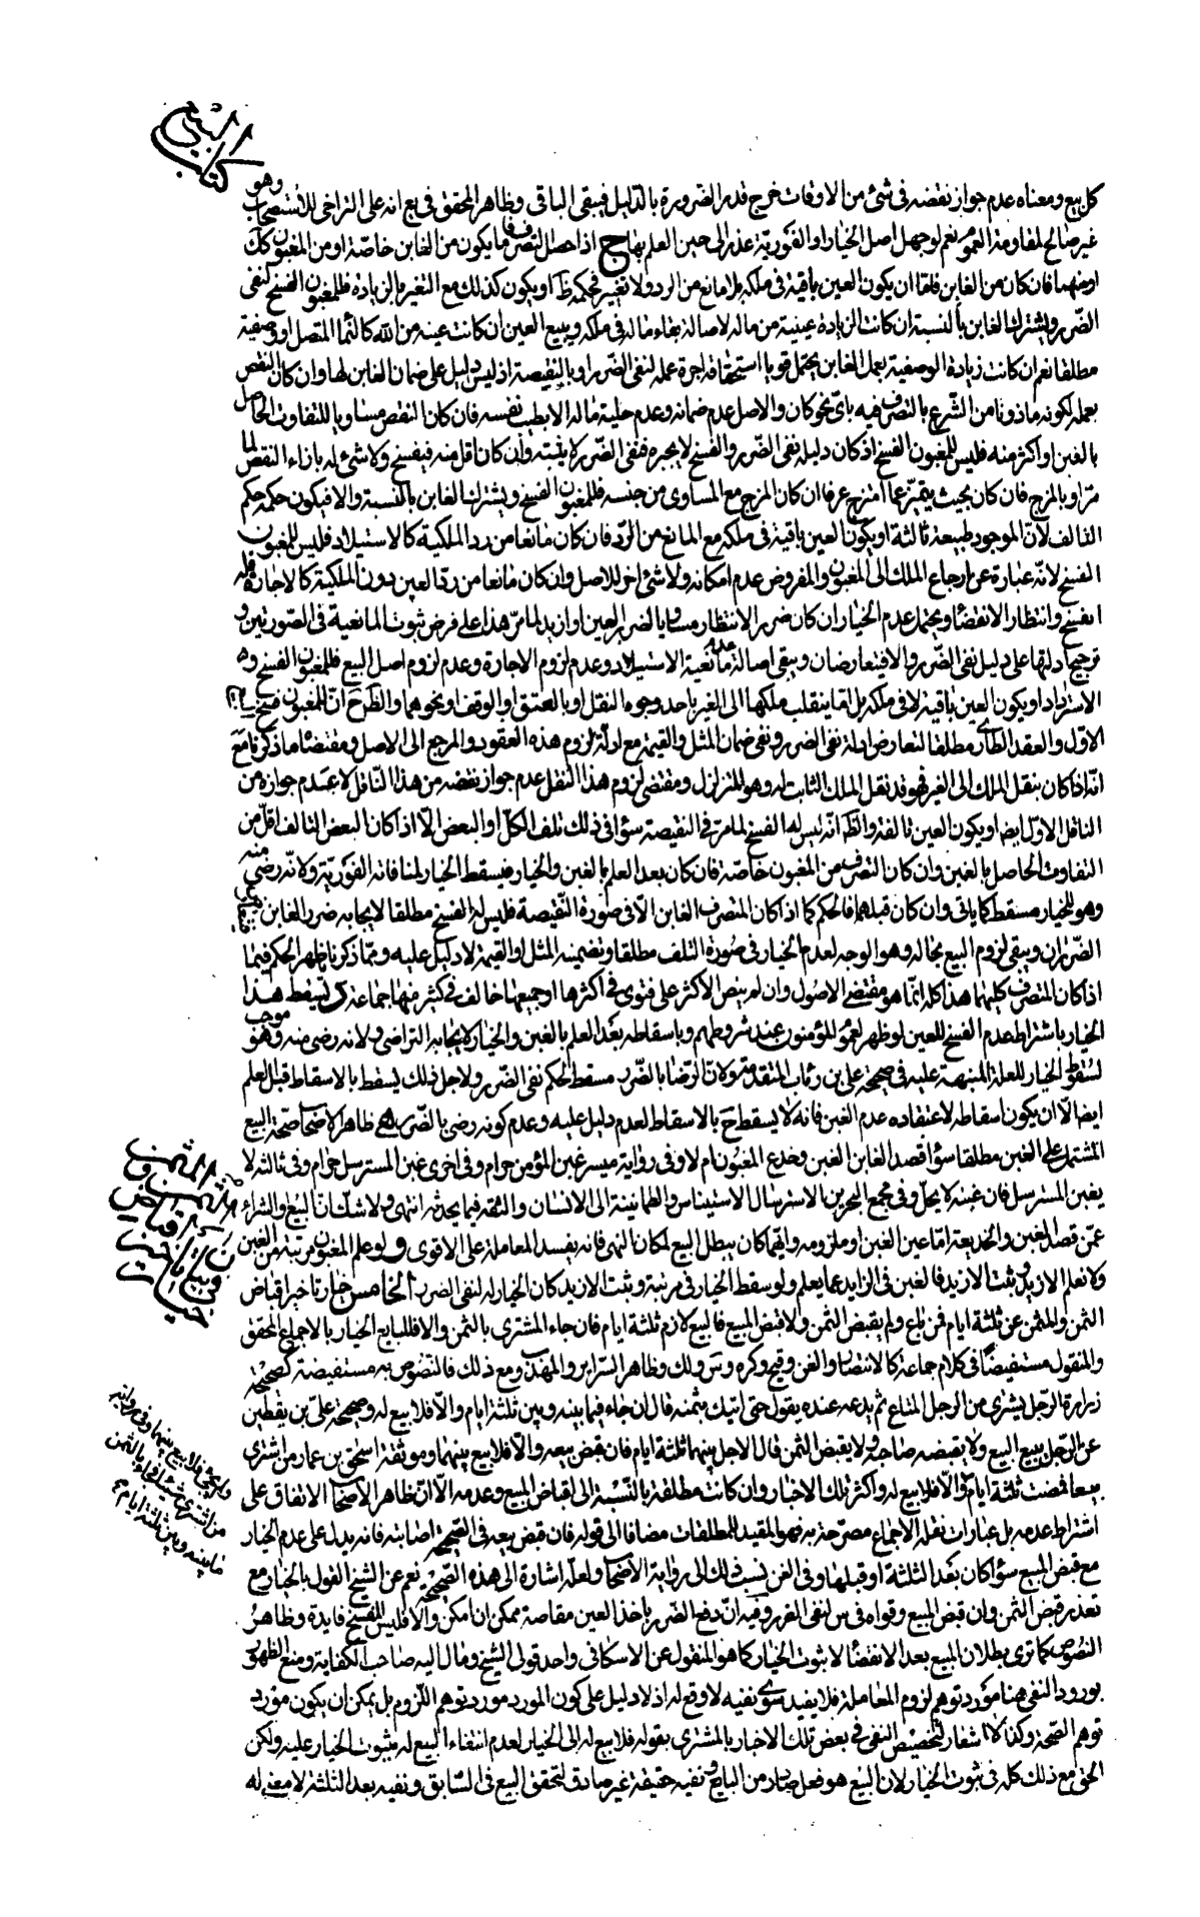 كتاب البيع
كل بيع ومعناه عدم جواز نقضه فى شئ من الاوقات خرج قدر الضرورة بالدليل فيبقى الباقى وظاهر المحقق فى يع انه على التراخى للاستصحاب وهو
غير صالح لمقاومة العموم نعم لو جهل اصل الخيار او الفورية عذر الى حين العلم بها ح اذا حصل التصرف فاما يكون من الغابن خاصة او من المغبون كك
او منهما فان كان من الغابن فلقا ان يكون العين باقية فى ملكه بلا مانع من الرد ولا تغيير فحكمه ظ او يكون كذلك مع التغير بالزيادة فللمغبون الفسخ لنفى
الضرر ويشترك الغابن بالنسبة ان كانت الزيادة عينية من ماله لاصالة بقاء ماله فى ملكه ويبيع العين ان كانت عينه من الله كالنماء المتصل او وصفية
مطلقا نعم ان كانت زيادة الوصفية بعمل الغابن يحتمل قويا استحقاقه اجرة عمله لنفى الضرر او بالنقيصة اذ ليس دليل على ضمان الغابن لها وان كان النقص
بعمله لكونه ماذونا من الشرع بالتصرف فيه باى نحو كان والاصل عدم ضمانه وعدم حلية ماله الا بطيب نفسه فان كان النقص مساويا للتفاوت الحاصل
بالغبن او اكثر منه فليس للمغبون الفسخ اذ كان دليله نفى الضرر والفسخ لا يجبره فنفى الضرر لا يثبته وان كان اقل منه فيفسخ ولا شئ له بازاء النقص لما
مر او بالمزج فان كان بحيث يتميز عما امتزج عرفا ان كان المزج مع المساوى من جنسه فللمغبون الفسخ ويشترك الغابن بالنسبة والا فيكون حكمه حكم
التالف لان الموجود طبيعة ثالثة او يكون العين باقية فى ملكه مع المانع من الرد فان كان مانعا من رد الملكية كالاستيلاد فليس للمغبون
الفسخ لانه عبارة عن ارجاع الملك الى المغبون والمفروض عدم امكانه ولا شئ اخر للاصل وان كان مانعا من رد العين دون الملكية كالاجارة فله
الفسخ وانتظار الانقضاء ويحتمل عدم الخيار ان كان ضرر الانتظار مساويا لضرر العين او ازيد لما مر هذا على فرض ثبوت المانعية فى الصورتين و
ترجيح ادلتها على دليل نفى الضرر والا فيتعارضان ويبقى اصالة عدم مانعية الاستيلاد وعدم لزوم الاجارة وعدم لزوم اصل البيع فللمغبون الفسخ و
الاسترداد او يكون العين باقية لا فى ملكه بل اما ينقلب ملكها الى الغير باحد وجوه النقل او بالعتق او الوقف او نحوهما والظ ح ان للمغبون فسخ
الاول والعقد الطارى مطلقا لتعارض ادلة نفى الضرر ونفى ضمان المثل والقيمة مع ادلة لزوم هذه العقود والمرجع الى الاصل ومقتضاه ما ذكرنا مع
انه اذا كان بنقل الملك الى الغير فهو قد نقل الملك الثابت له وهو المتزلزل ومقتضى لزوم هذا النقل عدم جواز نقضه من هذا الناقل لا عدم جوازه من
الناقل الاول ايضا او يكون العين تالفة والظ انه ليس له الفسخ لما مر فى النقيصة سواء فى ذلك تلف الكل او البعض الا اذا كان البعض التالف اقل من
التفاوت الحاصل بالغبن وان كان التصرف من المغبون خاصة فان كان بعد العلم بالغبن والخيار فيسقط الخيار لمنافاته الفورية ولانه رضى منه
وهو للخيار مسقط كما ياتى وان كان قبلهما فالحكم كما اذا كان المتصرف الغابن الا فى صورة النقيصة فليس له الفسخ مطلقا لايجابه ضرر الغابن
الضرران ويبقى لزوم البيع بحاله وهو الوجه لعدم الخيار فى صورة التلف مطلقا وتضمينه المثل او القيمة لا دليل عليه ومما ذكرنا يظهر الحكم فيما
اذا كان المتصرف كليهما هذا كله انما هو مقتضى الاصول وان لم ينص الاكثر على فتوى فى اكثرها او جميعها خالف فى كثير منها جماعة ى يسقط هذا
الخيار باشتراط عدم الفسخ للعين لو ظهر لعموم المؤمنون عند شروطهم وباسقاطه بعد العلم بالغبن والخيار لايجابه التراضى ولانه رضى منه وهو موجب
لسقوط الخيار للعلة المنبهة عليه فى صحيحة على بن رئاب المتقدمة ولان الرضا بالضرر مسقط لحكم نفى الضرر ولاجل ذلك يسقط بالاسقاط قبل العلم
ايضا الا ان يكون اسقاطه لاعتقاده عدم الغبن فانه لا يسقط ح بالاسقاط لعدم دليل عليه وعدم كونه رضى بالضرر يج ظاهر الاصحاب صحة البيع
المشتمل على الغبن مطلقا سواء قصد الغابن الغبن وخدع المغبون ام لا وفى رواية ميسر غبن المؤمن حرام وفى اخرى غبن المسترسل حرام وفى ثالثة لا
يغبن المسترسل فان غبنه لا يحل وفى مجمع البحرين الاسترسال الاستيناس والطمانينة الى الانسان والثقة فيما يحدثه انتهى ولا شك ان البيع والشراء
عمن قصد الغبن والخديعة اما عين الغبن او ملزومه وايهما كان يبطل البيع لمكان النهى فانه يفسد المعاملة على الاقوى و لو علم المغبون مرتبة من الغبن
ولا نعلم الازيد وثبت الازيد فالغبن فى الزايد عما يعلم ولو سقط الخيار فى مرتبة وثبت الازيد كان الخيار له لنفى الضرر الخامس خيار تاخير اقباض
الثمن والمثمن عن ثلثة ايام فمن باع ولم يقبض الثمن ولا قبض المبيع فالبيع لازم ثلثة ايام فان جاء المشترى بالثمن والا فللبايع الخيار بالاجماع المحقق
والمنقول مستفيضا فى كلام جماعة كالانتصار والغنى وفيهم وكره وس ولك وظاهر السرائر والمهذب ومع ذلك فالنصوص به مستفيضة كصحيحة
زرارة الرجل يشترى من الرجل المتاع ثم يدعه عنده يقول حتى اتيك بثمنه قال ان جاء فيما بينه وبين ثلثة ايام والا فلا بيع له وصحيحة على بن يقطين
عن الرجل يبيع البيع ولا يقبضه صاحبه ولا يقبض الثمن قال الاجل بينهما ثلثة ايام فان قبض بيعه والا فلا بيع بينهما وموثقة اسحق بن عمار من اشترى
بيعا فمضت ثلثة ايام ولم يجئ فلا بيع له واكثر تلك الاخبار وان كانت مطلقة بالنسبة الى اقباض المبيع وعدمه الا ان ظاهر الاصحاب الاتفاق على
اشتراط عدمه بل عبارات نقلة الاجماع مصرحة به فهو المقيد للمطلقات مضافا الى قوله فان قبض بيعه فى الصحيحة اضابته فانه يدل على عدم الخيار
مع قبض المبيع سواء كان بعد الثلثة او قبلها وفى الغنى نسب ذلك الى رواية الاصحاب ولعله اشارة الى هذه الصحيحة نعم عن الشيخ القول بالخيار مع
تعذر قبض الثمن وان قبض المبيع وقواه فى س لنفى الضرر وفيه ان دفع الضرر باخذ العين مقاصة ممكن ان امكن والا فليس للفسخ فايدة وظاهر
النصوص كما ترى بطلان البيع بعد الانقضاء لا ثبوت الخيار كما هو المنقول عن الاسكافى واحد قولى الشيخ ومال اليه صاحب الكفاية ومنع الظهور
بورود النفى هنا مورد توهم لزوم المعاملة فلا يفيد سوى نفيه لا وقع له اذ لا دليل على كون المورد مورد توهم اللزوم بل يمكن ان يكون مورد
توهم الصحة وكذا لا اشعار لتخصيص النفى فى بعض تلك الاخبار بالمشترى بقوله فلا بيع له الى الخيار لعدم انتفاء البيع له بثبوت الخيار عليه ولكن
الحق مع ذلك كله فى ثبوت الخيار لان البيع هو فعل صادر من البايع ونفيه حقيقة غير صادق لتحقق البيع فى السابق ونفيه بعد الثلثة لا معنى له
المثمن
الثمن و
اقباض
تاخير
خيار
ولم يجئ فلا بيع بينهما وفى رواية
من اشترى شيئا فجاء بالثمن
ما بينه وبين ثلثة ايام